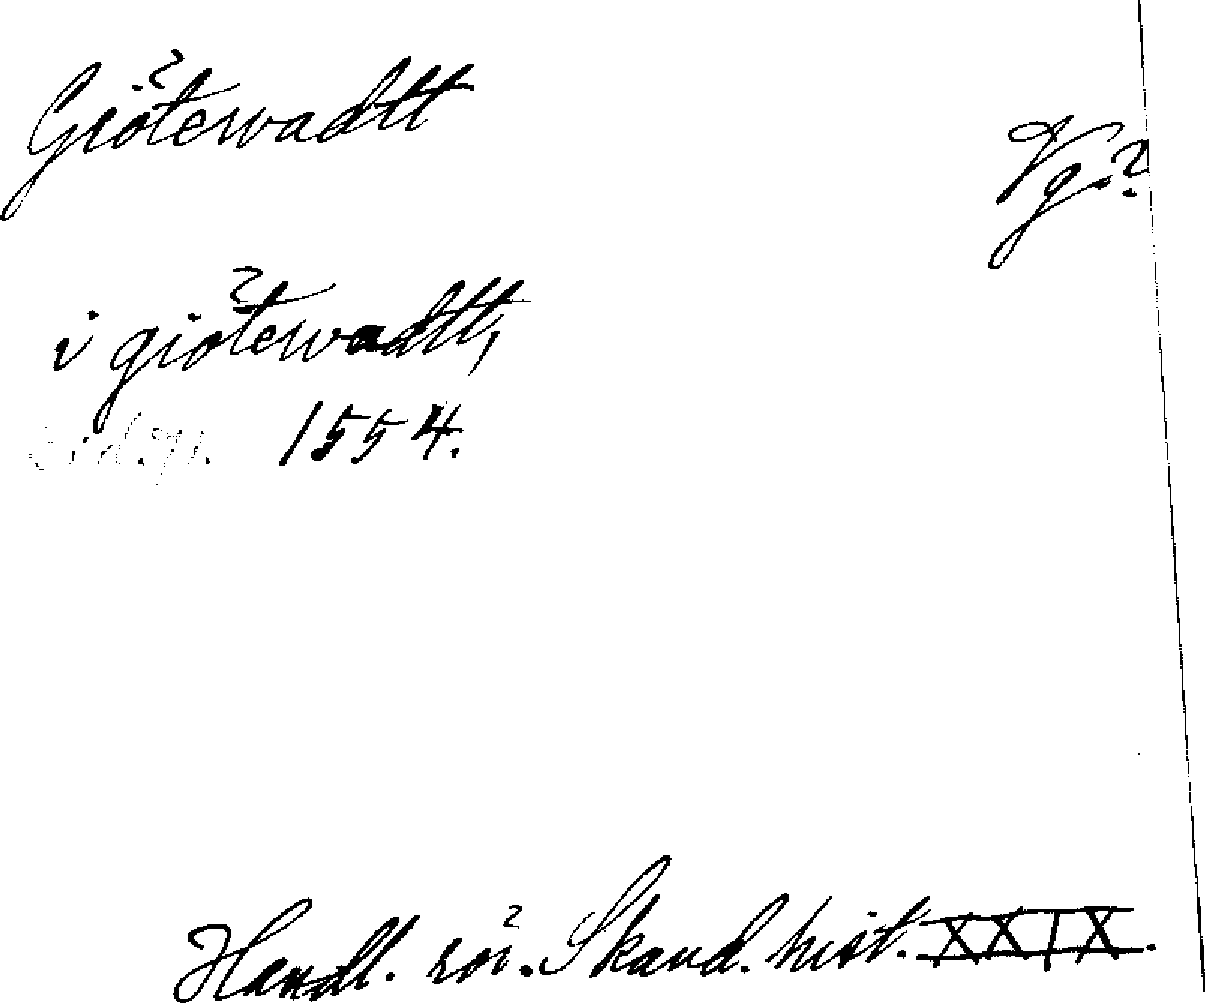 Giötewadtt
Vg.?
i giötewadtt,
1554.
Handl. rör. Skand. hist. XXIX.